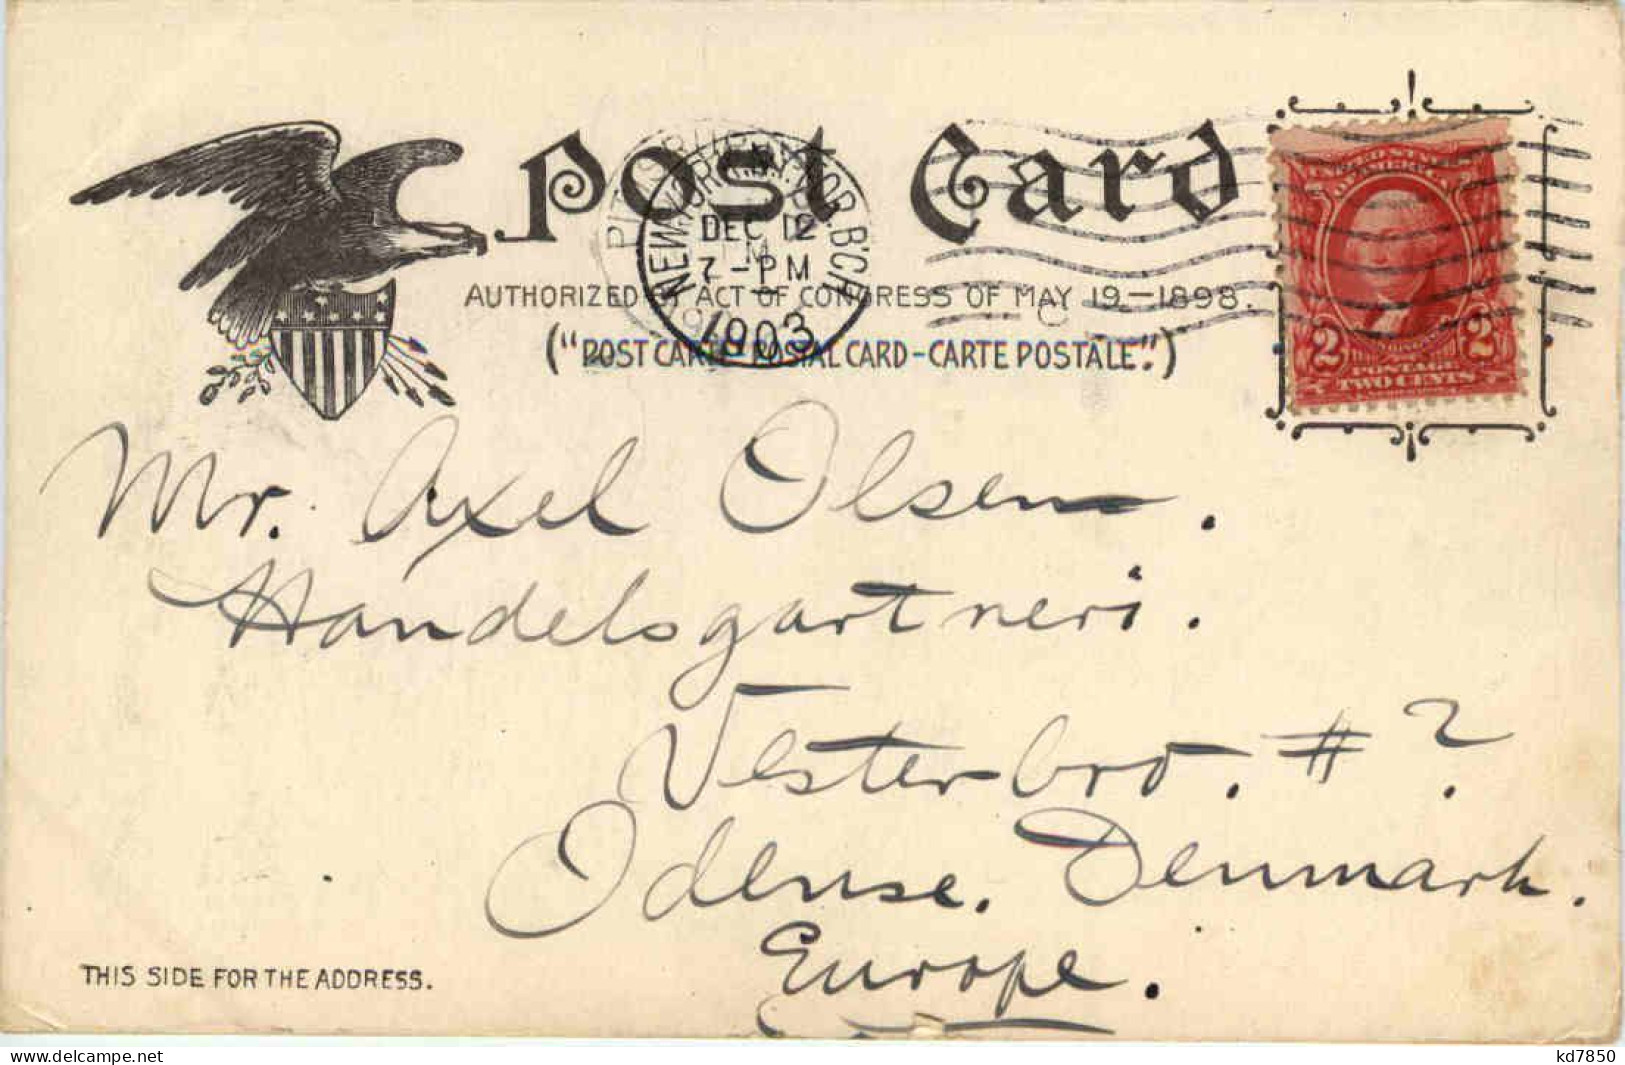 Post Card
AUTHORIZED BY ACT OF CONGRESS OF MAY 19-1898.
("POST CARD-POSTAL CARD-CARTE POSTALE".)
NEW YORK, N.Y. FOR. B'CH
DEC 12
7-PM
1903
UNITED STATES
OF AMERICA
2 2
POSTAGE
TWO CENTS
Mr. Axel Olsen.
Handelsgartneri.
Vesterbro. # ?
Odense. Denmark.
Europe.
THIS SIDE FOR THE ADDRESS.
www.delcampe.net
kd7850